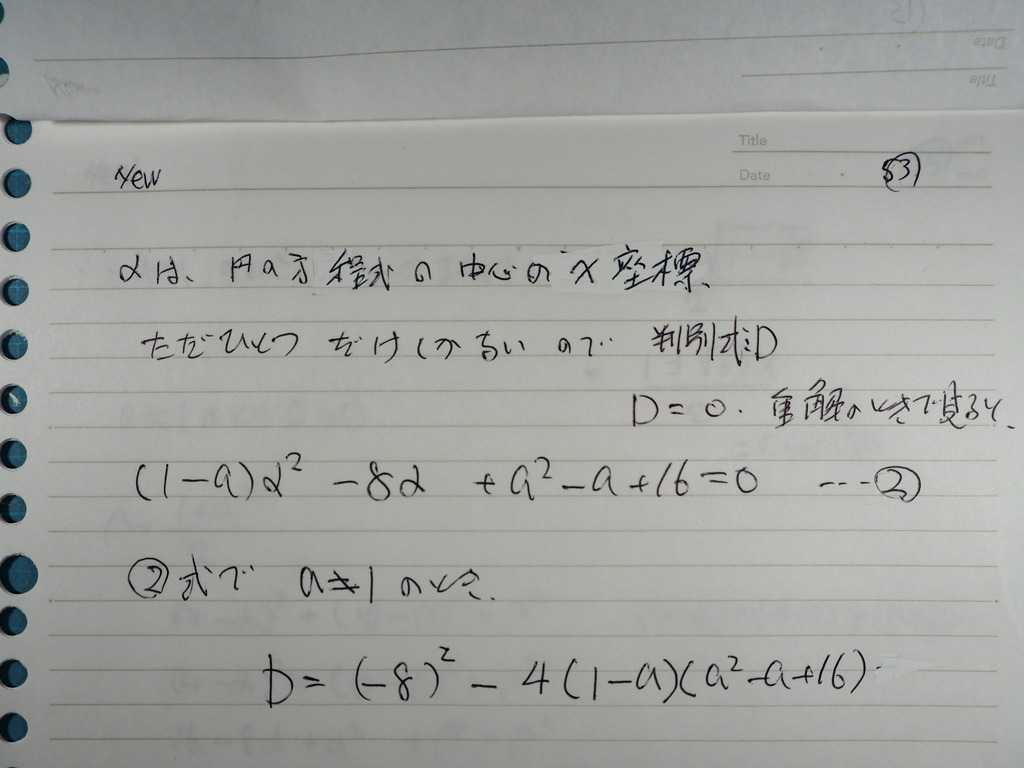 Title
Date
Yew
53
αは、円の方程式の中心のx座標、
ただひとつだけしかないので 判別式:D
D = 0. 重解のときで見ると、
(1-a)α² -8α +a²-a+16=0 ---②
②式で a≠1のとき、
D = (-8)² - 4(1-a)(a²-a+16)